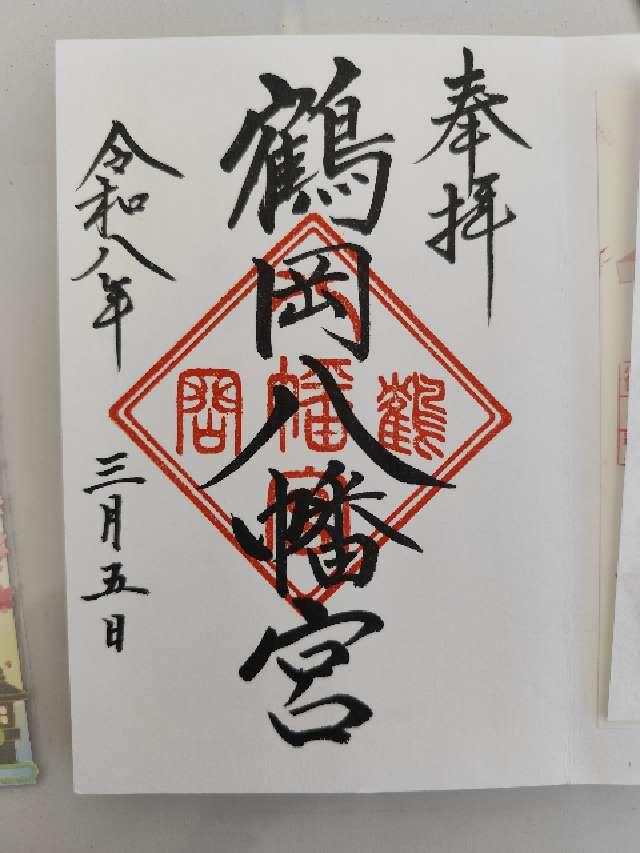 奉拝
鶴岡八幡宮
令和八年
三月五日
鶴
八幡宮
岡